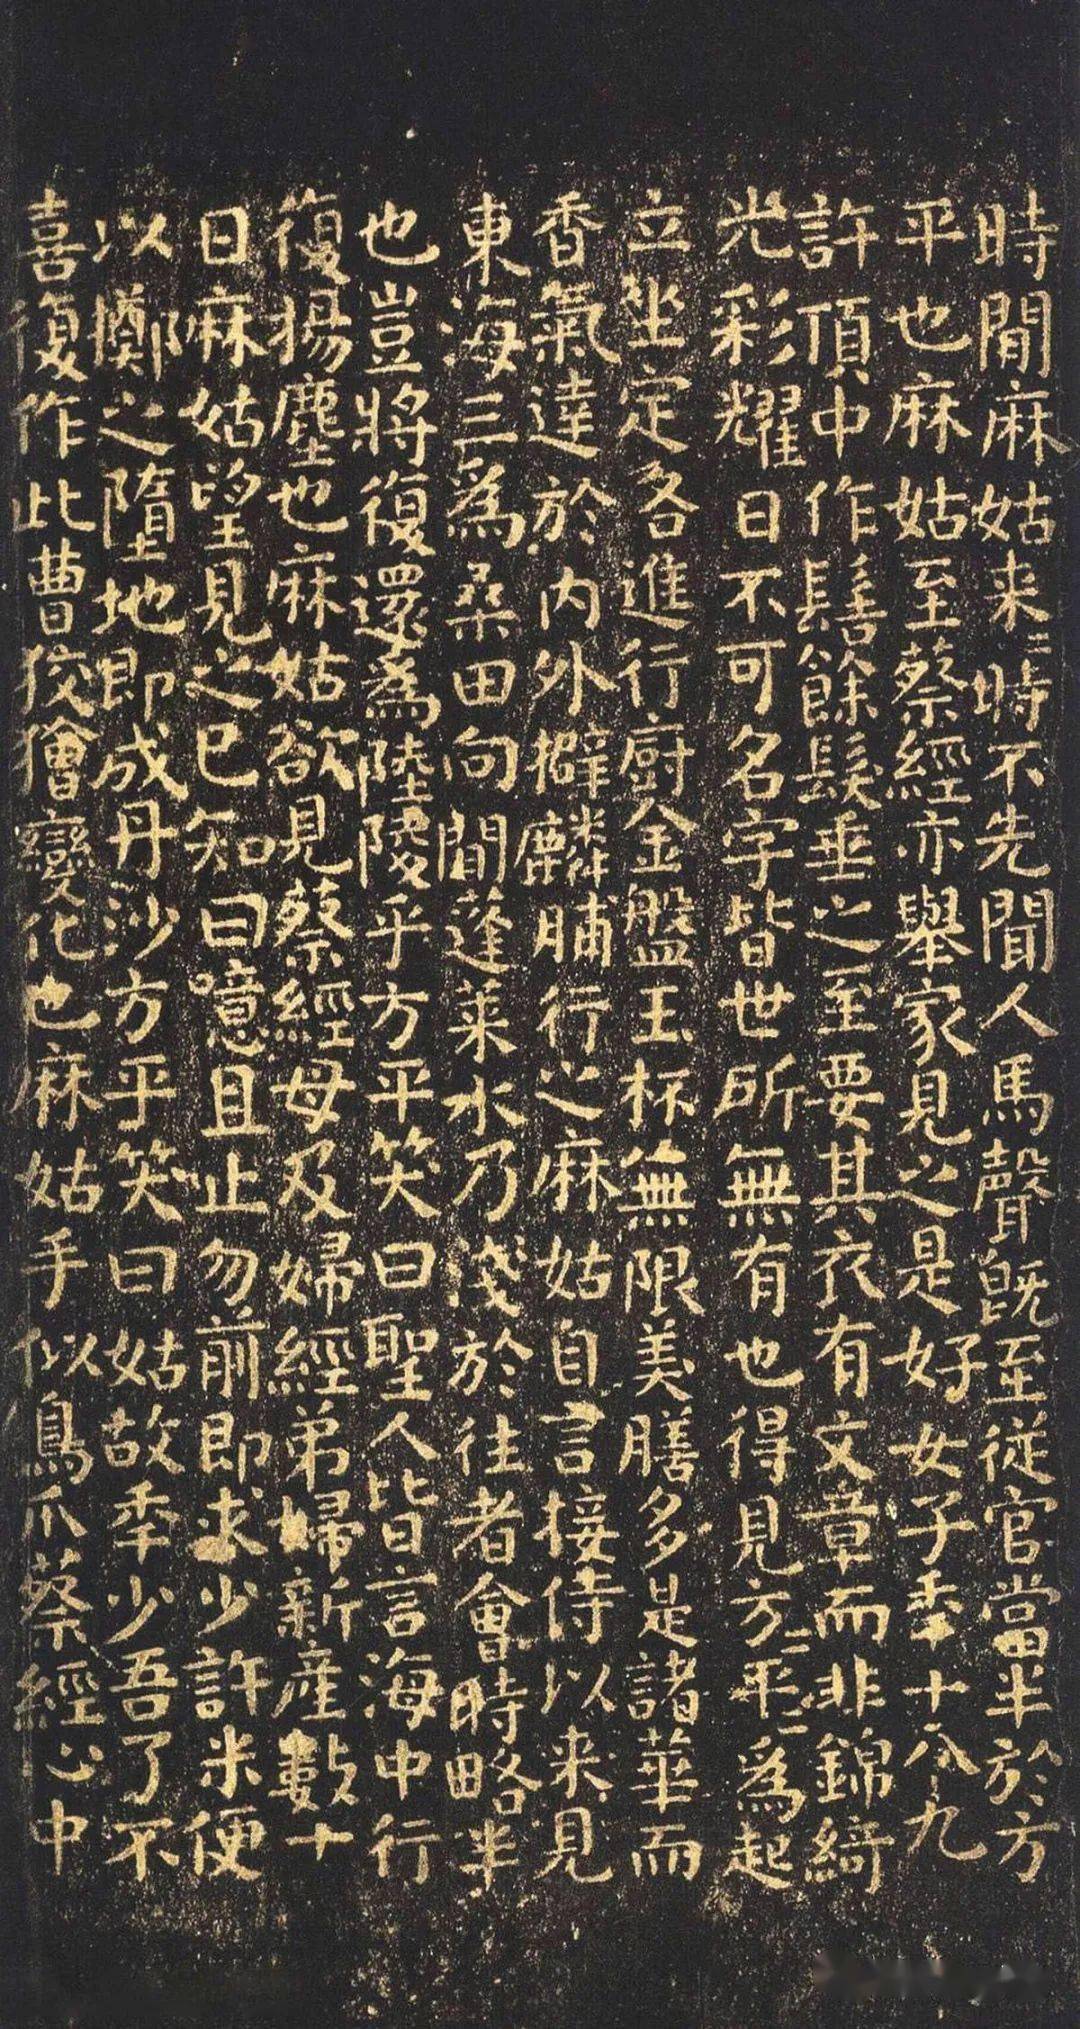 時間麻姑来〻時不先聞人馬聲既至從官當半於方
平也麻姑至蔡經亦舉家見之是好女子年十八九
許頂中作髻餘髮垂之至要其衣有文章而非錦綺
光彩耀日不可名字皆世所無有也得見方〻平〻為起
立坐定各進行厨金盤玉杯無限美膳多是諸華而
香氣達於内外擗麟脯行之麻姑自言接侍以来見
東海三為桑田向間蓬萊水乃淺於往者會時略半
也豈將復還為陸陵乎方平笑曰聖人皆言海中行
復揚塵也麻姑欲見蔡經母及婦經弟婦新產數十
日麻姑望見之已知曰噫且止勿前即求少許米便
以擲之墮地即成丹沙方平笑曰姑故年少吾了不
喜復作此曹狡獪變化也麻姑手似鳥爪蔡經心中